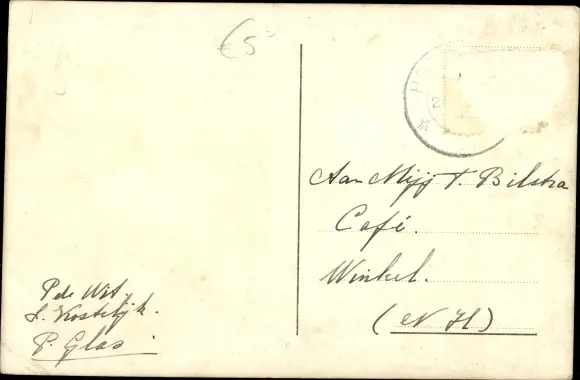 €5
P de Wit
S. Kostelijk.
P. Glas
H
Aan Mijj T. Bilstra
Café.
Winkel.
(N H)